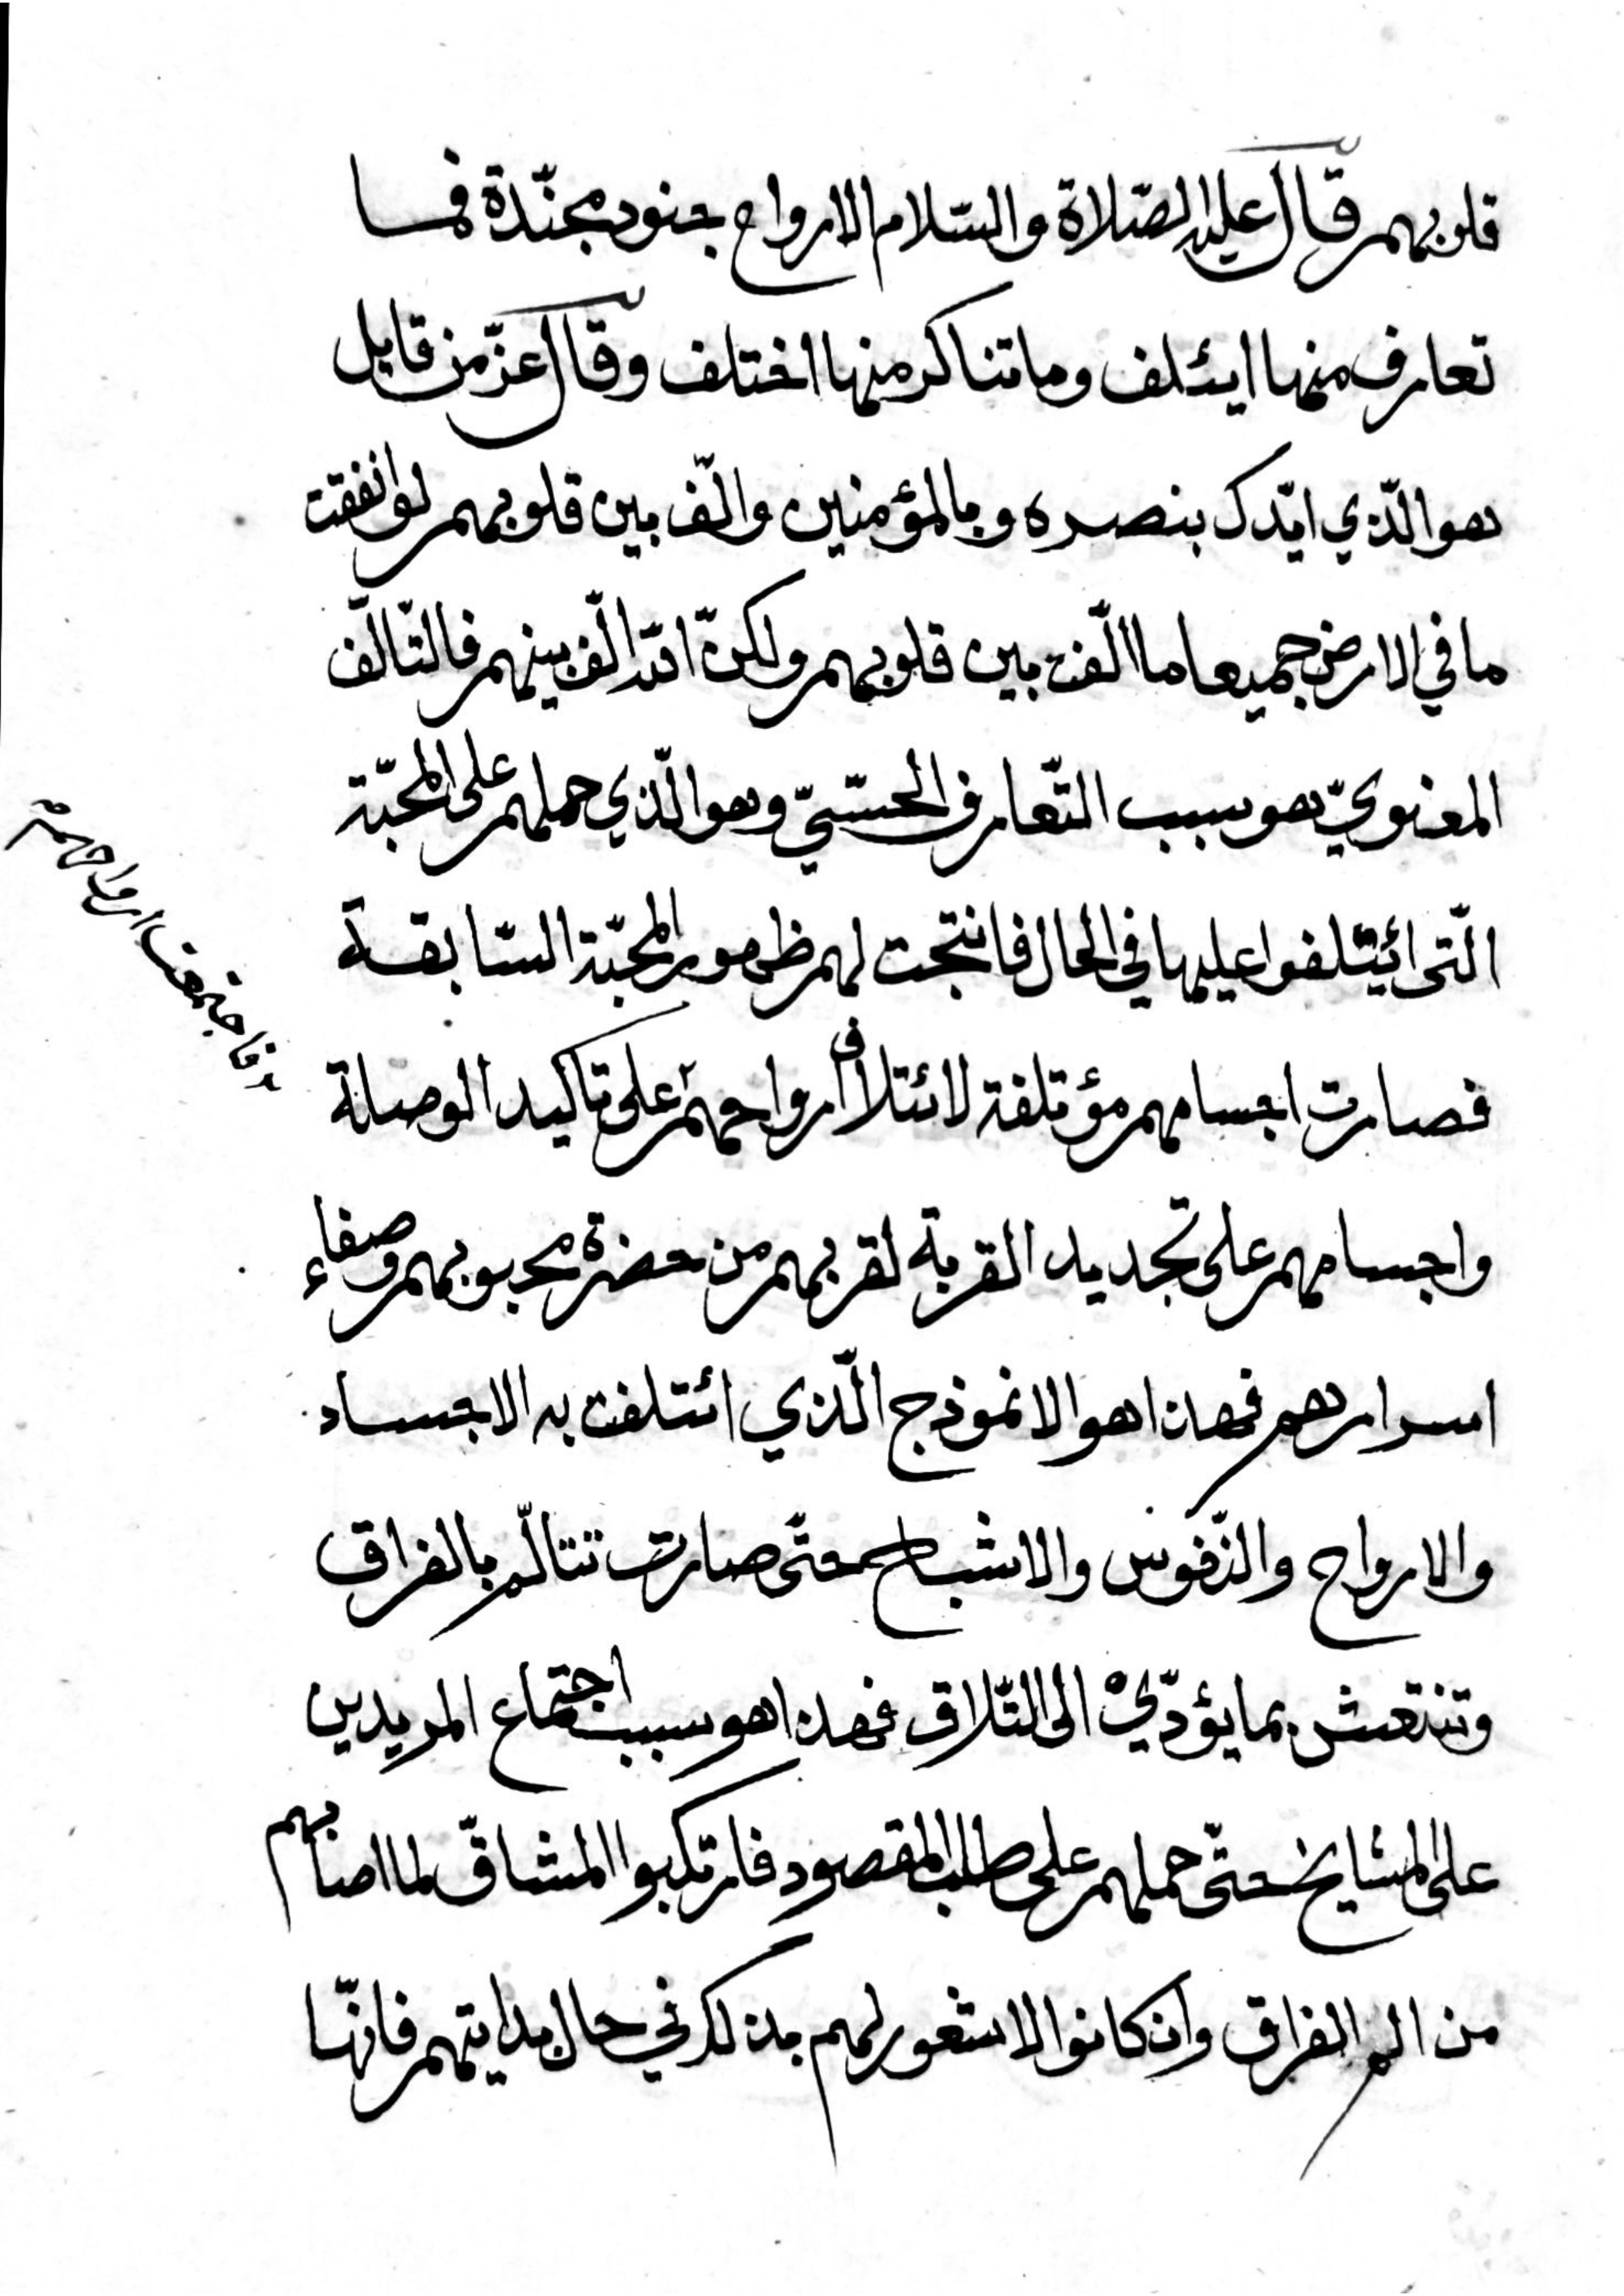 قلوبهم قال عليه الصّلاة والسّلام الارواح جنود مجنّدة فما
تعارف منها ايئلف وما تناكر منها اختلف وقال عزّ من قايل
هو الّذي ايّدك بنصره وبالمؤمنين والّف بين قلوبهم لو انفقت
ما في الارض جميعا ما الّفت بين قلوبهم ولكنّ الله الّف بينهم فالتّالّف
المعنويّ هو سبب التّعارف الحسّيّ وهو الّذي حملهم على المحبّة
الّتى ائيتلفوا عليها في الحال فانتجت لهم ظهور المحبّة السّابقة
فصارت اجسامهم مؤتلفة لائتلاف ارواحهم على تاكيد الوصلة
واجسامهم على تجديد القربة لقربهم من حضرة محبوبهم وصفاء
اسرارهم فهذا هو الانموذج الّذي ائتلفت به الاجساد
والارواح والنّفوس والاشباح حتّى صارت تتالّم بالفراق
وتنتعش بما يؤدّي الى التّلاق فهذا هو سبب اجتماع المريدين
على المشايخ حتّى حملهم على طلب المقصود فارتكبوا المشاقّ لما اصابهم
من الم الفراق وان كانوا لا شعور لهم بذلك في حال بدايتهم فانّها
فاجتمعت ارواحهم